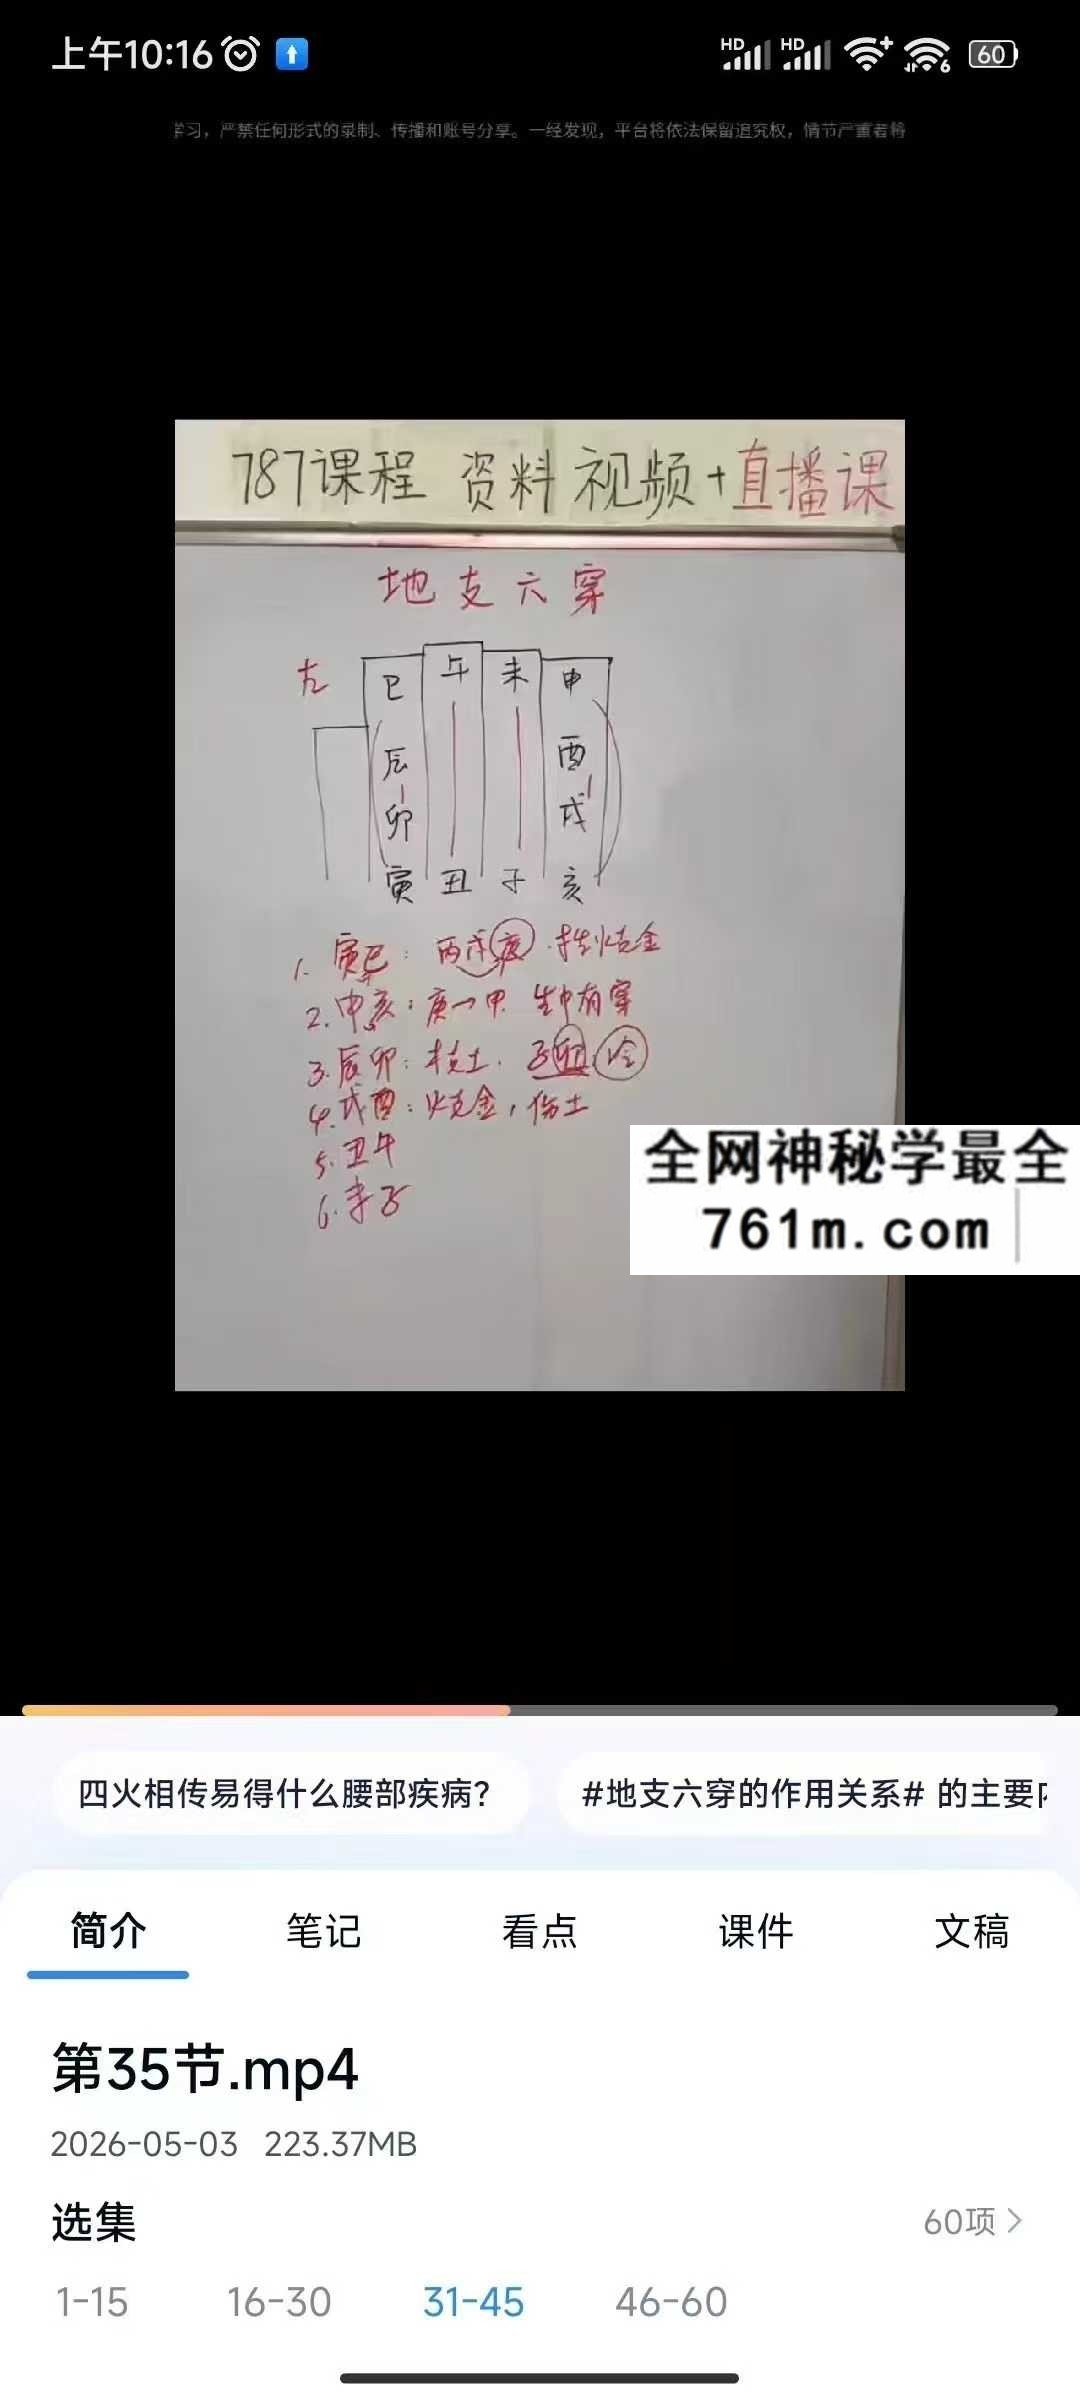 上午10:16
HD HD 6 60
学习，严禁任何形式的录制、传播和账号分享。一经发现，平台将依法保留追究权，情节严重者将
787课程 资料 视频+直播课
地支六穿
左
巳 午 未 申
辰 酉
卯 戌
寅 丑 子 亥
1. 寅巳：丙戊庚.木生火克金
2. 申亥：庚→甲 生中有穿
3. 辰卯：木克土.
4. 戌酉：火克金，伤土
5. 丑午
6. 未子
全网神秘学最全
761m.com
四火相传易得什么腰部疾病？
#地支六穿的作用关系# 的主要
简介 笔记 看点 课件 文稿
第35节.mp4
2026-05-03 223.37MB
选集 60项
1-15 16-30 31-45 46-60